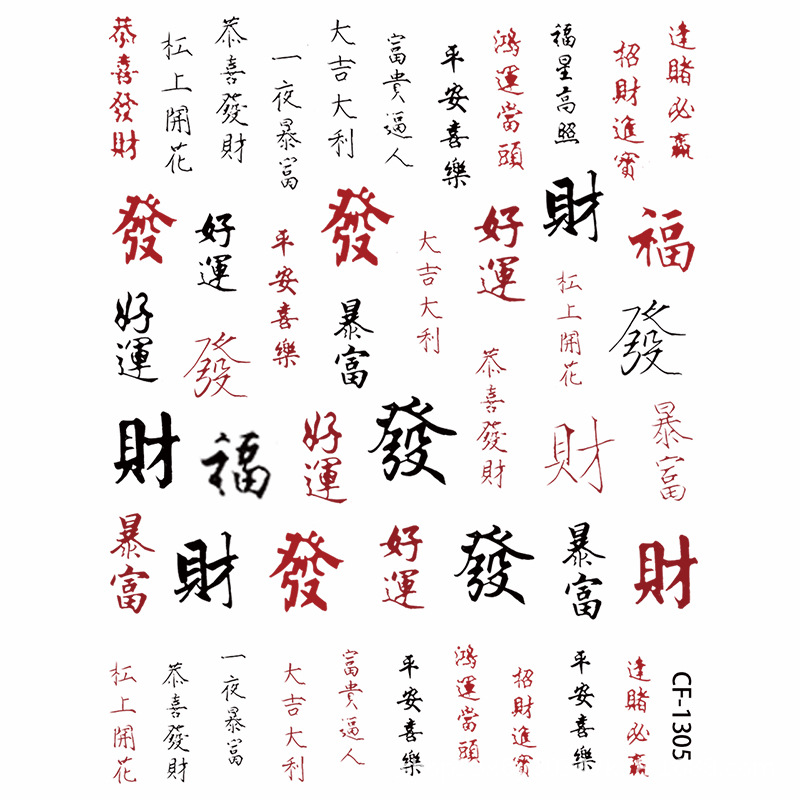 恭喜發財
杠上開花
恭喜發財
一夜暴富
大吉大利
富貴逼人
平安喜樂
鴻運當頭
福星高照
招財進寶
逢賭必贏
發
好運
平安喜樂
發
大吉大利
好運
財
福
好運
發
暴富
恭喜發財
杠上開花
發
財
福
好運
發
財
暴富
暴富
財
發
好運
發
暴富
財
杠上開花
恭喜發財
一夜暴富
大吉大利
富貴逼人
平安喜樂
鴻運當頭
招財進寶
平安喜樂
逢賭必贏
CF-1305